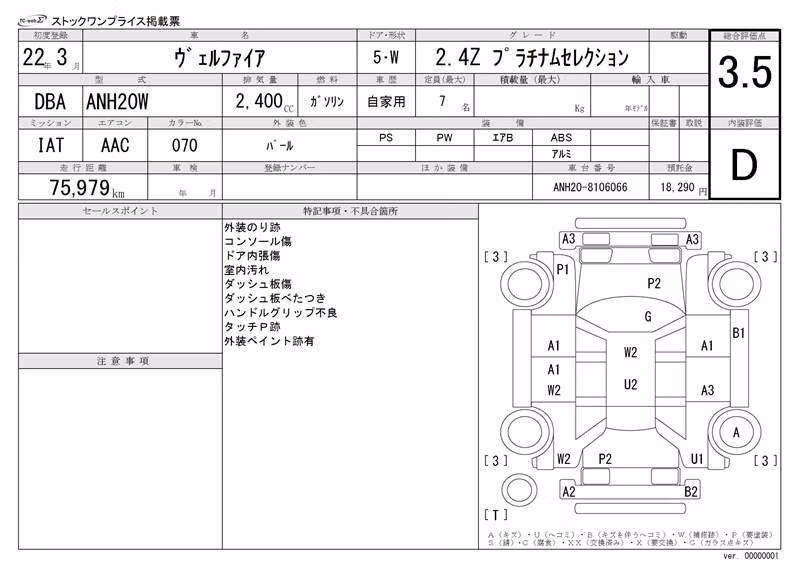 TC-webΣ ストックワンプライス掲載票
初度登録 車名 ドア・形状 グレード 駆動 総合評価点
22年 3月 ヴェルファイア 5・W 2.4Z プラチナムセレクション 3.5
型式 排気量 燃料 車歴 定員(最大) 積載量(最大) 輸入車
DBA ANH20W 2,400CC ガソリン 自家用 7名 Kg 年モデル
ミッション エアコン カラーNo. 外装色 装備 保証書 取説 内装評価
IAT AAC 070 パール PS PW エアB ABS D
アルミ
走行距離 車検 登録ナンバー ほか装備 車台番号 預託金
75,979km 年 月 ANH20-8106066 18,290円
セールスポイント
注意事項
特記事項・不具合箇所
外装のり跡
コンソール傷
ドア内張傷
室内汚れ
ダッシュ板傷
ダッシュ板べたつき
ハンドルグリップ不良
タッチP跡
外装ペイント跡有
A3 A3
[3] [3]
P1 P2
G
B1
A1 W2 A1
A1
W2 U2 A3
A
[3] W2 P2 U1 [3]
A2 B2
[T]
A(キズ)・U(ヘコミ)・B(キズを伴うヘコミ)・W(補修跡)・P(要塗装)
S(錆)・C(腐食)・XX(交換済み)・X(要交換)・G(ガラス点キズ)
ver. 00000001